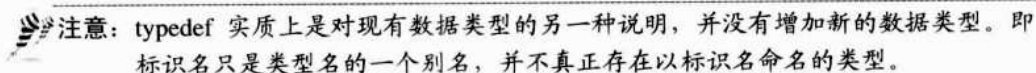 注意：typedef 实质上是对现有数据类型的另一种说明，并没有增加新的数据类型。即
标识名只是类型名的一个别名，并不真正存在以标识名命名的类型。